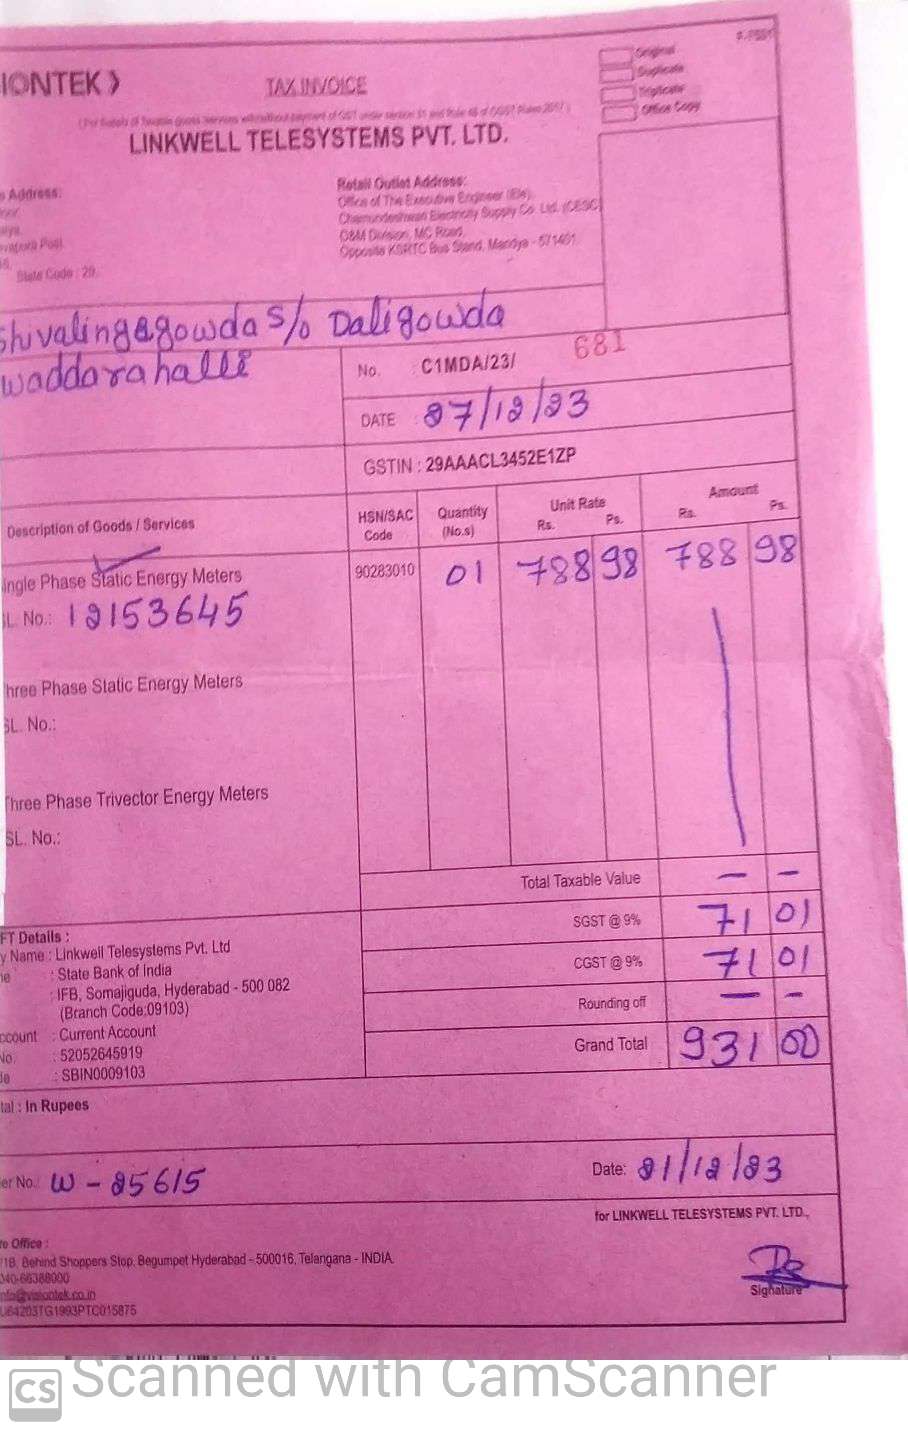 IONTEK
TAX INVOICE
Original
Duplicate
Triplicate
Office Copy
LINKWELL TELESYSTEMS PVT. LTD.
Address:
State Code : 29
Retail Outlet Address:
Office of The Executive Engineer (Ele),
Chamundeshwari Electricity Supply Co. Ltd. (CESC)
O&M Division, MC Road,
Opposite KSRTC Bus Stand, Mandya - 571401
Shivalingagowda S/o Daligowda
waddarahalli
No. : C1MDA/23/ 681
DATE : 27/12/23
GSTIN : 29AAACL3452E1ZP
Description of Goods / Services HSN/SAC Code Quantity (No.s) Unit Rate Rs. Ps. Amount Rs. Ps.
ingle Phase Static Energy Meters 90283010 01 788 98 788 98
SL. No.: 12153645
hree Phase Static Energy Meters
SL. No.:
Three Phase Trivector Energy Meters
SL. No.:
Total Taxable Value — —
SGST @ 9% 71 01
CGST @ 9% 71 01
Rounding off — —
Grand Total 931 00
FT Details :
y Name : Linkwell Telesystems Pvt. Ltd
: State Bank of India
: IFB, Somajiguda, Hyderabad - 500 082
(Branch Code:09103)
ccount : Current Account
No. : 52052645919
de : SBIN0009103
tal : In Rupees
er No.: W - 25615
Date: 21/12/23
for LINKWELL TELESYSTEMS PVT. LTD.,
re Office :
11B, Behind Shoppers Stop, Begumpet Hyderabad - 500016, Telangana - INDIA.
040-66388000
nfo@visiontek.co.in
U64203TG1993PTC015875
Signature
CS Scanned with CamScanner